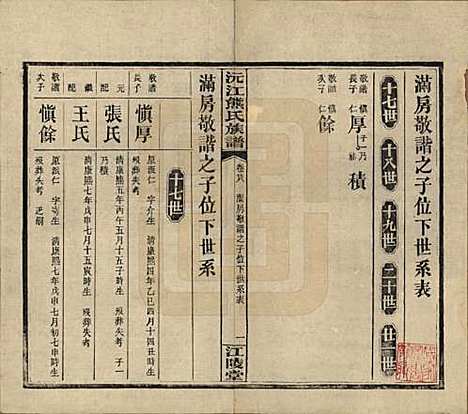 滿房敬譜之子位下世系表
十七世 十八世 十九世 二十世 廿一世
敬譜長子 慎厚 仁 子一 乃積
敬譜次子 慎餘 仁
沅江熊氏族譜 卷廿八 滿房敬譜之子位下世系表 一 江陵堂
滿房敬譜之子位下世系
十七世
敬譜長子 慎厚 原派仁 字介生 清康熙四年乙巳四月十四丑時生 歿葬失考
元配 張氏 清康熙五年丙午五月十五子時生 歿葬失考 子一 乃積
繼配 王氏 清康熙七年戊申七月十五寅時生 歿葬失考
敬譜次子 慎餘 原派仁 字 生 清康熙七年戊申七月初七申時生 歿葬失考 乏嗣